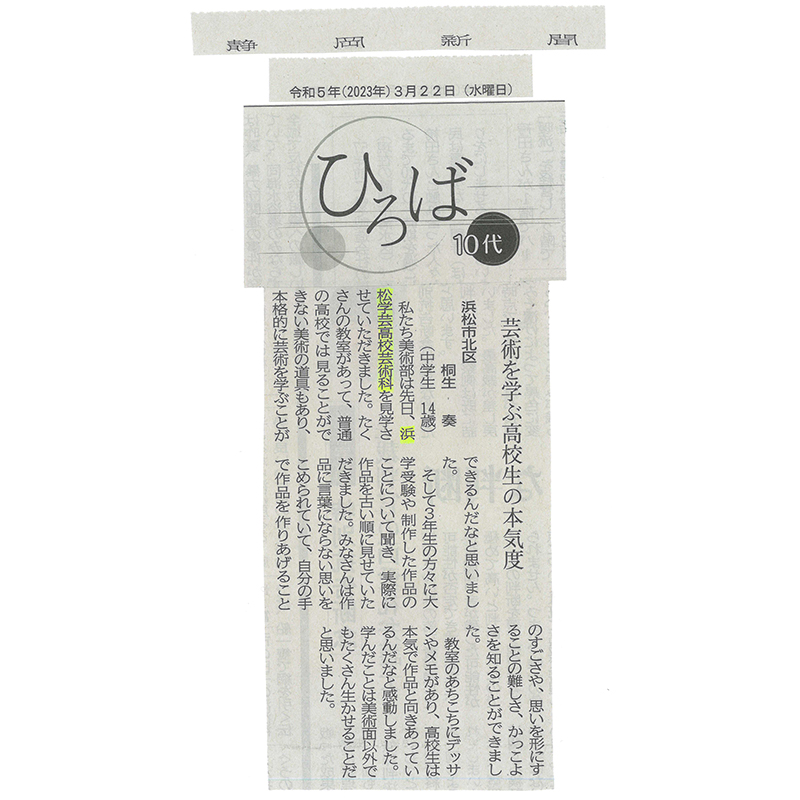 静岡新聞
令和5年(2023年)3月22日(水曜日)
ひろば
10代
芸術を学ぶ高校生の本気度
浜松市北区
桐生 奏
(中学生 14歳)
私たち美術部は先日、浜
松学芸高校芸術科を見学さ
せていただきました。たく
さんの教室があって、普通
の高校では見ることがで
きない美術の道具もあり、
本格的に芸術を学ぶことが
できるんだなと思いまし
た。
そして3年生の方々に大
学受験や制作した作品の
ことについて聞き、実際に
作品を古い順に見せていた
だきました。みなさんは作
品に言葉にならない思いを
こめられていて、自分の手
で作品を作りあげること
のすごさや、思いを形にす
ることの難しさ、かっこよ
さを知ることができまし
た。
教室のあちこちにデッサ
ンやメモがあり、高校生は
本気で作品と向きあってい
るんだなと感動しました。
学んだことは美術面以外で
もたくさん生かせることだ
と思いました。